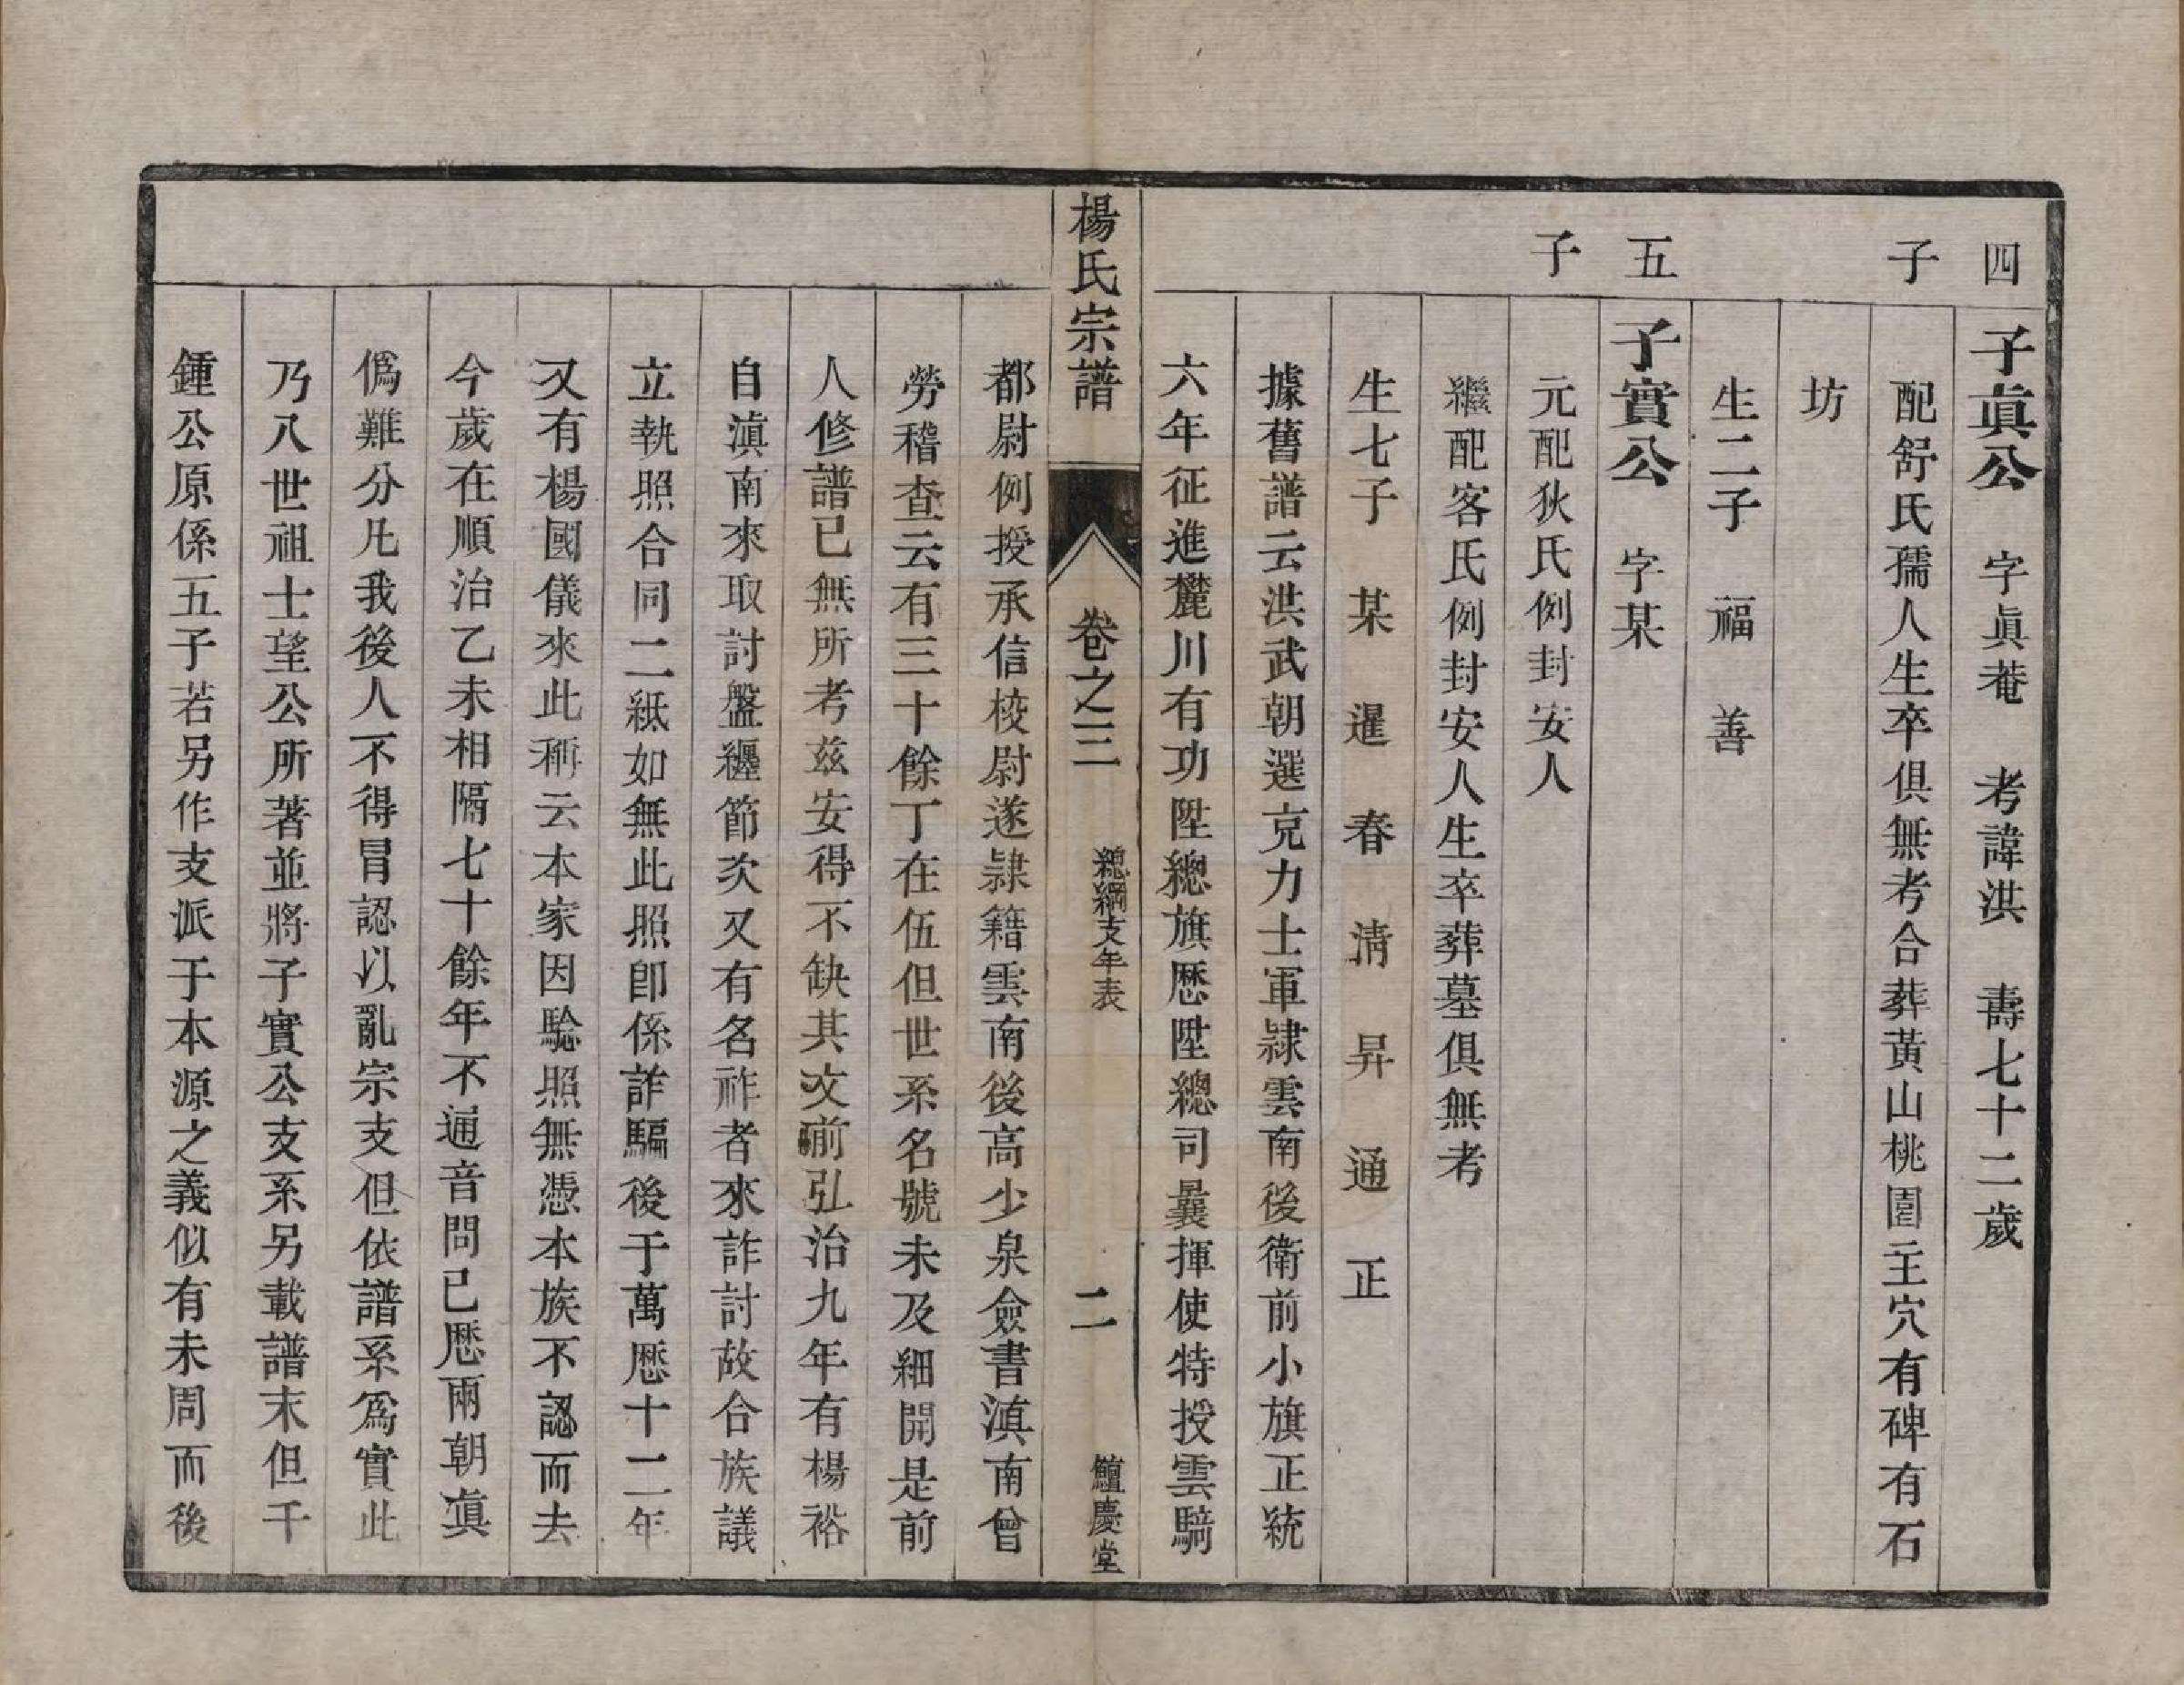 四子
子眞公　字眞菴　考諱洪　壽七十二歲
配舒氏孺人生卒俱無考合葬黃山桃園主穴有碑有石
坊
生二子　福　善
五子
子實公　字某
元配狄氏例封安人
繼配客氏例封安人生卒葬墓俱無考
生七子　某　暹　春　淸　昇　通　正
據舊譜云洪武朝選克力士軍隸雲南後衛前小旗正統
六年征進麓川有功陞總旗歷陞總司曩揮使特授雲騎
楊氏宗譜　卷之三　總綱支年表　二　鱣慶堂
都尉例授承信校尉遂隸籍雲南後高少泉僉書滇南曾
勞稽查云有三十餘丁在伍但世系名號未及細開是前
人修譜已無所考兹安得不缺其文前弘治九年有楊裕
自滇南來取討盤纏節次又有名祚者來詐討故合族議
立執照合同二紙如無此照卽係詐騙後于萬厯十二年
又有楊國儀來此稱云本家因騐照無憑本族不認而去
今歲在順治乙未相隔七十餘年不通音問已厯兩朝眞
僞難分凡我後人不得冒認以亂宗支但依譜系爲實此
乃八世祖士望公所著並將子實公支系另載譜末但千
鍾公原係五子若另作支派于本源之義似有未周而後